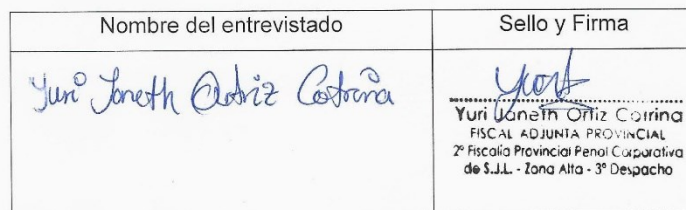 Nombre del entrevistado
Sello y Firma
Yuri Janeth Ortiz Cotrina
Yuri Janeth Ortiz Cotrina
FISCAL ADJUNTA PROVINCIAL
2º Fiscalía Provincial Penal Corporativa
de S.J.L. - Zona Alta - 3º Despacho